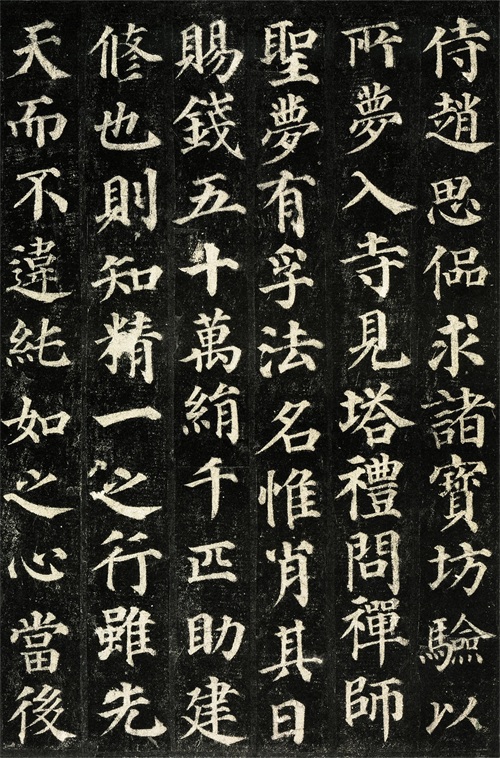 侍趙思偘求諸寶坊驗以
所夢入寺見塔禮問禪師
聖夢有孚法名惟肖其日
賜錢五十萬絹千匹助建
修也則知精一之行雖先
天而不違純如之心當後